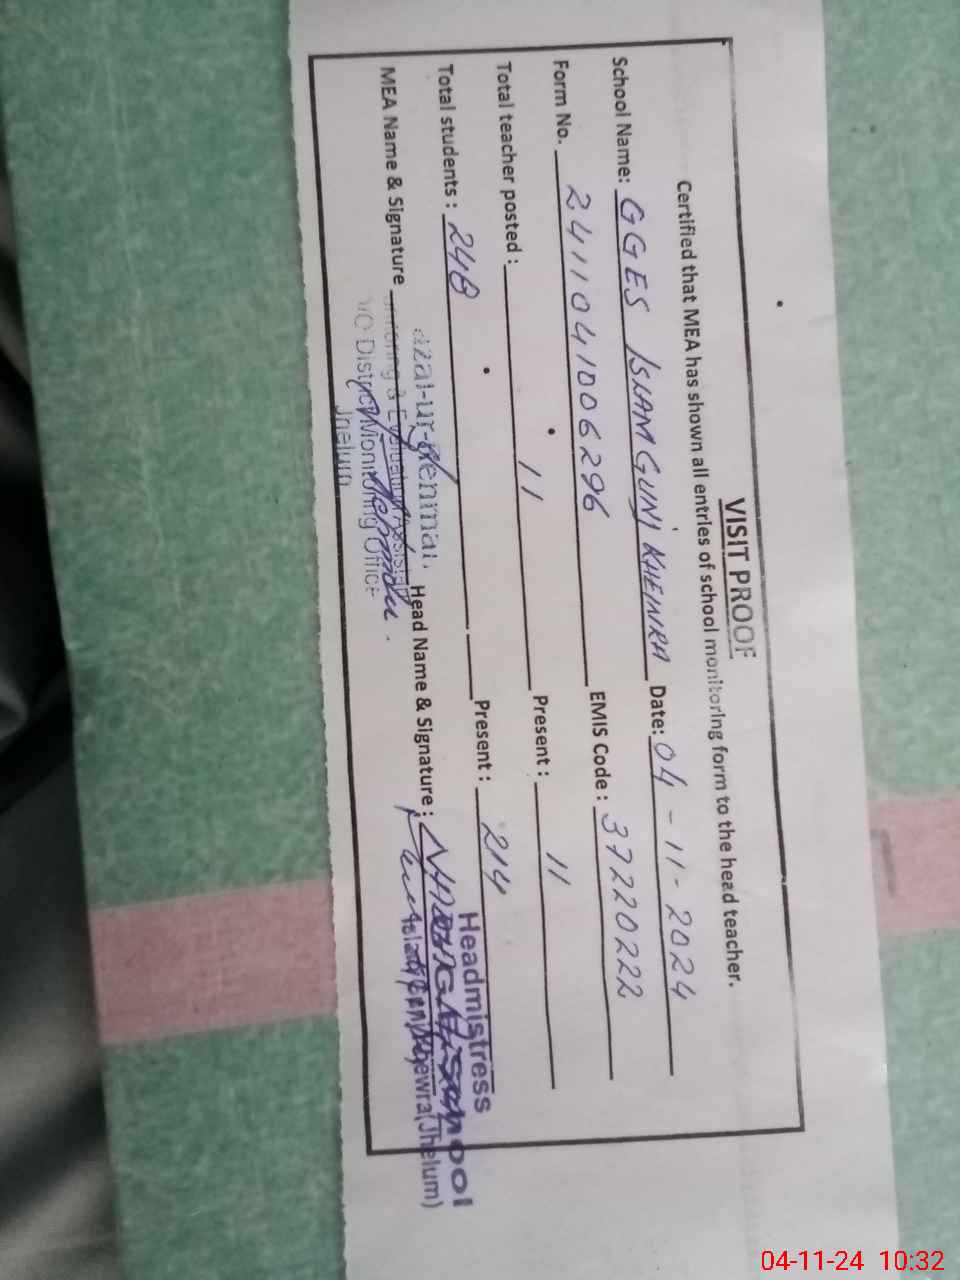 VISIT PROOF
Certified that MEA has shown all entries of school monitoring form to the head teacher.
School Name: GGES ISLAM GUNJ KHEWRA Date: 04-11-2024
Form No. 2411041006296 EMIS Code: 37220222
Total teacher posted: 11 Present: 11
Total students: 248 Present: 214
MEA Name & Signature Head Name & Signature:
Monitoring & Evaluation Assistant
O/O District Monitoring Office
Jhelum
Headmistress
School
Khewra(Jhelum)
04-11-24 10:32